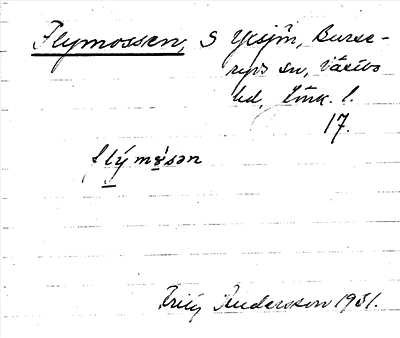 Flymossen, S Yxsjön, Burse-
ryds sn, Västbo
hd, Jönk. l.
17.
flýmòsən
Fritz Andersson 1931.